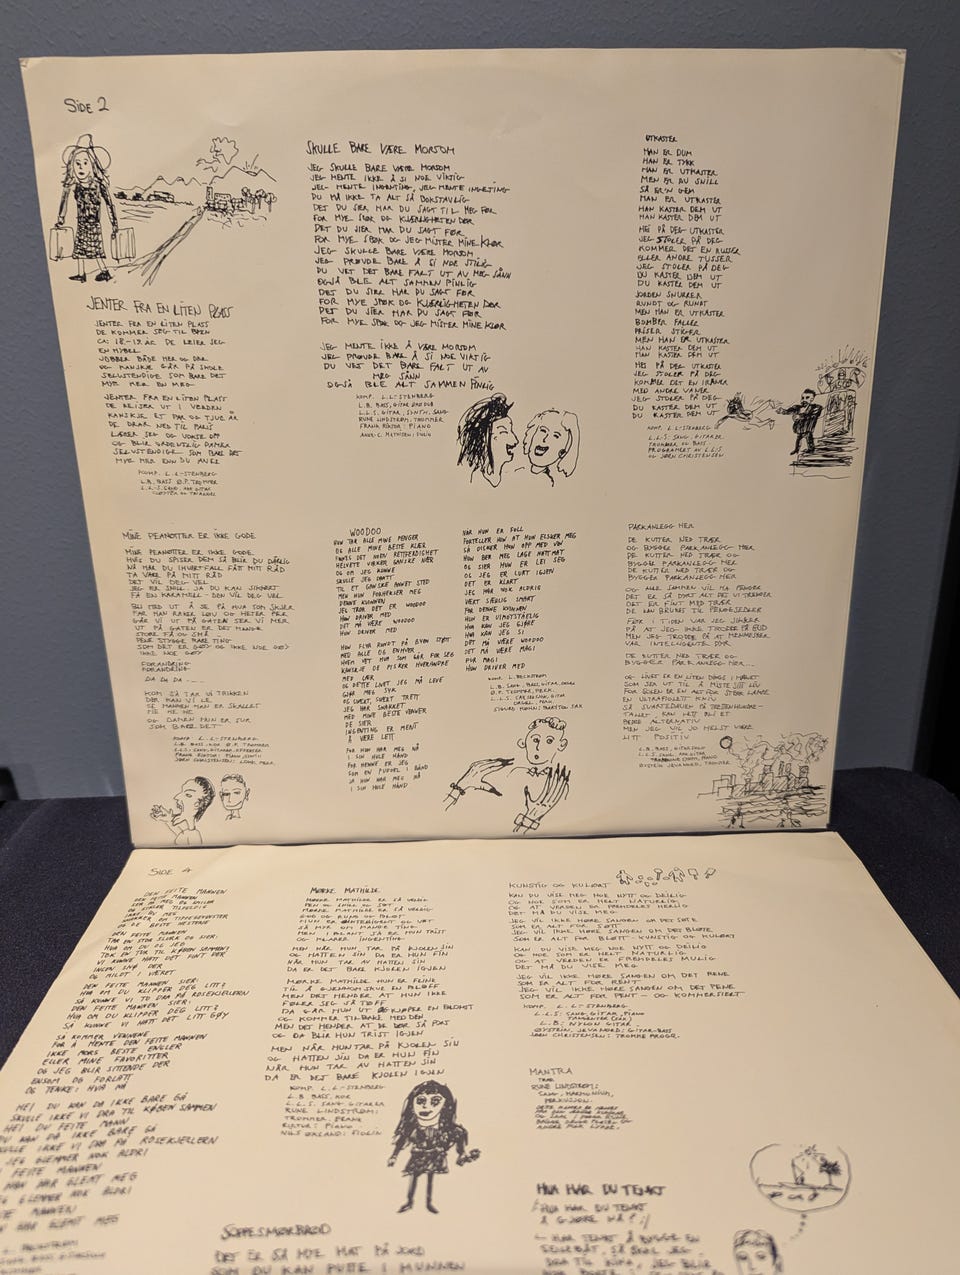 SIDE 2
JENTER FRA EN LITEN PLASS
JENTER FRA EN LITEN PLASS
DE KOMMER SEG TIL BYEN
CA: 18-19 ÅR DE LEIER SEG
EN HYBEL
JOBBER BÅDE HER OG DER
OG KANSKJE GÅR PÅ SKOLE
SELVSTENDIGE SOM BARE DET
MYE MER EN MEG
JENTER FRA EN LITEN PLASS
DE REISER UT I VERDEN
KANSKJE ET PAR OG TJUE ÅR
DE DRAR NED TIL PARIS
LÆRER SEG OG VOKSE OPP
OG BLIR ORDENTLIG DAMER
SELVSTENDIGE SOM BARE DET
MYE MER ENN DU ANER
KOMP. L.L-STENBERG
L.B. BASS Ø.P. TROMMER
L.L-S. SANG, AKK. GITAR
SKULLE BARE VÆRE MORSOM
JEG SKULLE BARE VÆRE MORSOM
JEG MENTE IKKE Å SI NOE VIKTIG
JEG MENTE INGENTING, JEG MENTE INGETING
DU MÅ IKKE TA ALT SÅ BOKSTAVLIG
DET DU SIER HAR DU SAGT TIL MEG FØR
FOR MYE SPØK OG KJÆRLIGHETEN DØR
DET DU SIER HAR DU SAGT FØR
FOR MYE SPØK OG JEG MISTER MINE KLØR
JEG SKULLE BARE VÆRE MORSOM
JEG PRØVDE BARE Å SI NOE STILIG
DU VET DET BARE FALT UT AV MEG SÅNN
OGSÅ BLE ALT SAMMEN PINLIG
DET DU SIER HAR DU SAGT FØR
FOR MYE SPØK OG KJÆRLIGHETEN DØR
DET DU SIER HAR DU SAGT FØR
FOR MYE SPØK OG JEG MISTER MINE KLØR
JEG MENTE IKKE Å VÆRE MORSOM
JEG PRØVDE BARE Å SI NOE VIKTIG
DU VET DET BARE FALT UT AV
MEG SÅNN
OGSÅ BLE ALT SAMMEN PINLIG
KOMP. L.L-STENBERG
L.B. BASS, GITAR
L.L.S. GITAR, SYNTH, SANG
RUNE LINDSTRØM, TROMMER
: PIANO
UTKASTER
HAN ER DUM
HAN ER TYKK
HAN ER UTKASTER
MEN ER DU SNILL
SÅ ER'N GEM
HAN ER UTKASTER
HAN KASTER DEM UT
HAN KASTER DEM UT
HEI PÅ DEG UTKASTER
JEG STOLER PÅ DEG
KOMMER DET EN RUSSER
ELLER ANDRE TUSSER
JEG STOLER PÅ DEG
DU KASTER DEM UT
DU KASTER DEM UT
JORDEN SNURRER
RUNDT OG RUNDT
MEN HAN ER UTKASTER
BOMBER FALLER
PRISER STIGER
MEN HAN ER UTKASTER
HAN KASTER DEM UT
HAN KASTER DEM UT
HEI PÅ DEG UTKASTER
JEG STOLER PÅ DEG
KOMMER DET EN IRANER
MED ANDRE VANER
JEG STOLER PÅ DEG
DU KASTER DEM UT
DU KASTER DEM UT
KOMP. L.L-STENBERG
L.L.S. SANG, GITARER
TROMMER OG BASS
PROGRAMERT AV L.L.S
OG JØRN CHRISTENSEN
MINE PEANØTTER ER IKKE GODE
MINE PEANØTTER ER IKKE GODE
HVIS DU SPISER DEM SÅ BLIR DU DÅRLIG
NÅ HAR DU IHVERTFALL FÅTT MITT RÅD
TA VARE PÅ MITT RÅD
DET VIL DEG VEL
JEG ER SNILL, JA DU KAN SIKKERT
FÅ EN KARAMELL. DEN VIL DEG VEL
BLI MED UT Å SE PÅ HVA SOM SKJER
FAR HAN RAKER LØV OG HETER PER
GÅR VI UT PÅ GATEN SER VI MER
UT PÅ GATEN ER DET MANGE
STORE FÅ OG SMÅ
PENE STYGGE BARE TING
SOM DET ER GØY OG IKKE NOE GØY
IKKE NOE GØY
FORANDRING
FORANDRING
DA DU DA ....
KOM SÅ TAR VI TRIKKEN
DER KAN VI LE
SE MANNEN HAN ER SKALLET
HE HE HE
OG DAMEN HUN ER SUR
SOM BARE DET
KOMP. L.L-STENBERG
L.B. BASS, KOR Ø.P. TROMMER
L.L.S. SANG, GITARER, EFFEKTER
: PIANO, SYNTH
JØRN CHRISTENSEN:
WOODOO
HUN TAR ALLE MINE PENGER
OG ALLE MINE BESTE KLÆR
FINNES DET NOEN RETTFERDIGHET
HELVETE VIRKER GANSKE NÆR
OG OM JEG KUNNE
SKULLE JEG DRATT
TIL ET GANSKE ANNET STED
MEN HUN FORHEKSER MEG
DENNE KVINNEN
JEG TROR DET ER WOODOO
HUN DRIVER MED
DET MÅ VÆRE WOODOO
HUN DRIVER MED
HUN FLYR RUNDT PÅ BYEN STØTT
MED ALLE OG ENHVER
HVEM VET HVA SOM GÅR FOR SEG
KANSKJE DE PISKER HVERANDRE
MED LÆR
OG DETTE LIVET JEG MÅ LEVE
GJØR MEG SYK
OG SVÆRT, SVÆRT TRETT
JEG HAR SNAKKET
MED MINE BESTE VENNER
DE SIER
INGENTING ER MENT
Å VÆRE LETT
FOR HUN HAR MEG NÅ
I SIN HULE HÅND
FOR HENNE ER JEG
SOM EN PUDDEL I BÅND
JA HUN HAR MEG NÅ
I SIN HULE HÅND
NÅR HUN ER FULL
FORTELLER HUN AT HUN ELSKER MEG
SÅ DISKER HUN OPP MED VIN
HUN BER MEG LAGE NATTMAT
OG SIER HUN ER LEI SEG
OG JEG ER LURT IGJEN
DET ER KLART
JEG HAR NOK ALDRI
VÆRT SÆRLIG SMART
FOR DENNE KVINNEN
HUN ER UIMOTSTÅELIG
HVA KAN JEG GJØRE
HVA KAN JEG SI
DET MÅ VÆRE WOODOO
DET MÅ VÆRE MAGI
PUR MAGI
HUN DRIVER MED
KOMP. L. BECKSTRØM
L.B. SANG, BASS, GITAR, ORGEL
Ø.P. TROMMER, PERK.
SIGURD KØHN: BARYTON SAX
PARKANLEGG HER
DE KUTTER NED TRÆR
OG BYGGER PARKANLEGG HER
DE KUTTER NED TRÆR OG
BYGGER PARKANLEGG HER
DE KUTTER NED TRÆR OG
BYGGER PARKANLEGG HER
OG ALLE SAMMEN VIL HA PENGER
DET ER SÅ DYRT ALT DET VI TRENGER
DET ER FINT MED TRÆR
DE KAN BRUKES TIL PENGESEDLER
FØR I TIDEN VAR JEG SIKKER
PÅ AT JEG IKKE TRODDE PÅ GUD
MEN JEG TRODDE PÅ AT MENNESKER
VAR INTELLIGENTE DYR
DE KUTTER NED TRÆR OG
BYGGER PARKANLEGG HER...
OG LIVET ER EN LITEN DINGS I HØLET
SOM SER UT TIL Å MISTE SITT LIV
FOR SOLEN ER EN ALTFOR STOR LAMPE
EN ULTRAFIOLETT KNIV
ET
BEDRE ALTERNATIV
MEN JEG VIL JO HELST VÆRE
LITT POSITIV
L.B. BASS, GITAR
L.L.S. SANG, AKK. GITAR
ØYSTEIN JEVANORD, TROMMER
SIDE 4
DEN FEITE MANNEN
DEN FEITE MANNEN
DEN FEITE MANNEN
TAR EN STOR SLURK OG SIER:
HVA OM DU OG JEG
TOK EN TUR TIL KØBEN SAMMEN?
VI KUNNE HATT DET FINT DER
INGEN SNØ DER
OG MILDT I VÆRET
DEN FEITE MANNEN SIER
HVA OM DU KLIPPER DEG LITT?
SÅ KUNNE VI TO DRA PÅ ROSEKJELLERN
DEN FEITE MANNEN SIER:
HVA OM DU KLIPPER DEG LITT?
SÅ KUNNE VI HATT DET LITT GØY
SÅ KOMMER VENNEN
FOR Å HENTE DEN FEITE MANNEN
IKKE MORS BESTE ENGLER
ELLER MINE FAVORITTER
OG JEG BLIR SITTENDE DER
ENSOM OG FORLATT
OG TENKE: HVA NÅ
HEI! DU KAN DA IKKE BARE GÅ
SKULLE IKKE VI DRA TIL KØBEN SAMMEN
HEI! DU FEITE MANNEN
DU KAN DA IKKE BARE GÅ
SKULLE IKKE VI DRA PÅ ROSEKJELLERN
JEG GLEMMER NOK ALDRI
FEITE MANNEN
HAN HAR GLEMT MEG
GLEMMER NOK ALDRI
FEITE MANNEN
HAR GLEMT MEG
MØRKE MATHILDE
MØRKE MATHILDE ER SÅ VELDIG
MØRKE MATHILDE ER SÅ VELDIG
GOD OG RUND OG BLØT
HUN ER INTELLIGENT OG VÅT
SÅ MYE OM MANGE TING
MEN I BLANT SÅ ER HUN TRIST
OG KLARER INGENTING
MEN NÅR HUN TAR PÅ KJOLEN SIN
OG HATTEN SIN DA ER HUN FIN
NÅR HUN TAR AV HATTEN SIN
DA ER DET BARE KJOLEN IGJEN
MØRKE MATHILDE HUN ER FLINK
TIL Å GJENNOMSKUE EN BLØFF
MEN DET HENDER AT HUN IKKE
FØLER SEG SÅ TØFF
DA GÅR HUN UT OG KJØPER EN BLOMST
OG KOMMER TILBAKE MED DEN
MEN DET HENDER AT DE DØR SÅ FORT
OG DA BLIR HUN TRIST IGJEN
MEN NÅR HUN TAR PÅ KJOLEN SIN
OG HATTEN SIN DA ER HUN FIN
NÅR HUN TAR AV HATTEN SIN
DA ER DET BARE KJOLEN IGJEN
KOMP. L.L-STENBERG
L.B. BASS, KOR
L.L.S. SANG, GITARER
RUNE LINDSTRØM:
TROMMER,
: PIANO
NILS ØKLAND: FIOLIN
SOPPESMØRBRØD
DET ER SÅ MYE MAT PÅ JORD
SOM DU KAN PUTTE I MUNNEN
KUNSTIG OG KULØRT
KAN DU VISE MEG NOE NYTT OG DEILIG
OG NOE SOM ER HELT NATURLIG
OG AT VERDEN ER FREMDELES HERLIG
DET MÅ DU VISE MEG
JEG VIL IKKE HØRE SANGEN OM DET SØTE
SOM ER ALT FOR SØTT
JEG VIL IKKE HØRE SANGEN OM DET BLØTE
SOM ER ALT FOR BLØTT - KUNSTIG OG KULØRT
KAN DU VISE MEG NOE NYTT OG DEILIG
OG NOE SOM ER HELT NATURLIG
OG AT VERDEN ER FREMDELES MULIG
DET MÅ DU VISE MEG
JEG VIL IKKE HØRE SANGEN OM DET RENE
SOM ER ALT FOR RENT
JEG VIL IKKE HØRE SANGEN OM DET PENE
SOM ER ALT FOR PENT - OG KOMMERSIELT
KOMP. L.L-STENBERG
L.L.S: SANG, GITAR, PIANO
L.B: NYLON GITAR
ØYSTEIN JEVANORD: GITAR-BASS
JØRN CHRISTENSEN: TROMME PROGR.
MANTRA
TRAD.
RUNE LINDSTRØM:
SANG, HARMONIUM,
PERKUSJON.
HVA HAR DU TENKT
/: HVA HAR DU TENKT
Å GJØRE NÅ? :/
- HAR TENKT Å BYGGE EN
SEILBÅT, SÅ SKAL JEG
DRA TIL KINA, JEG BLIR